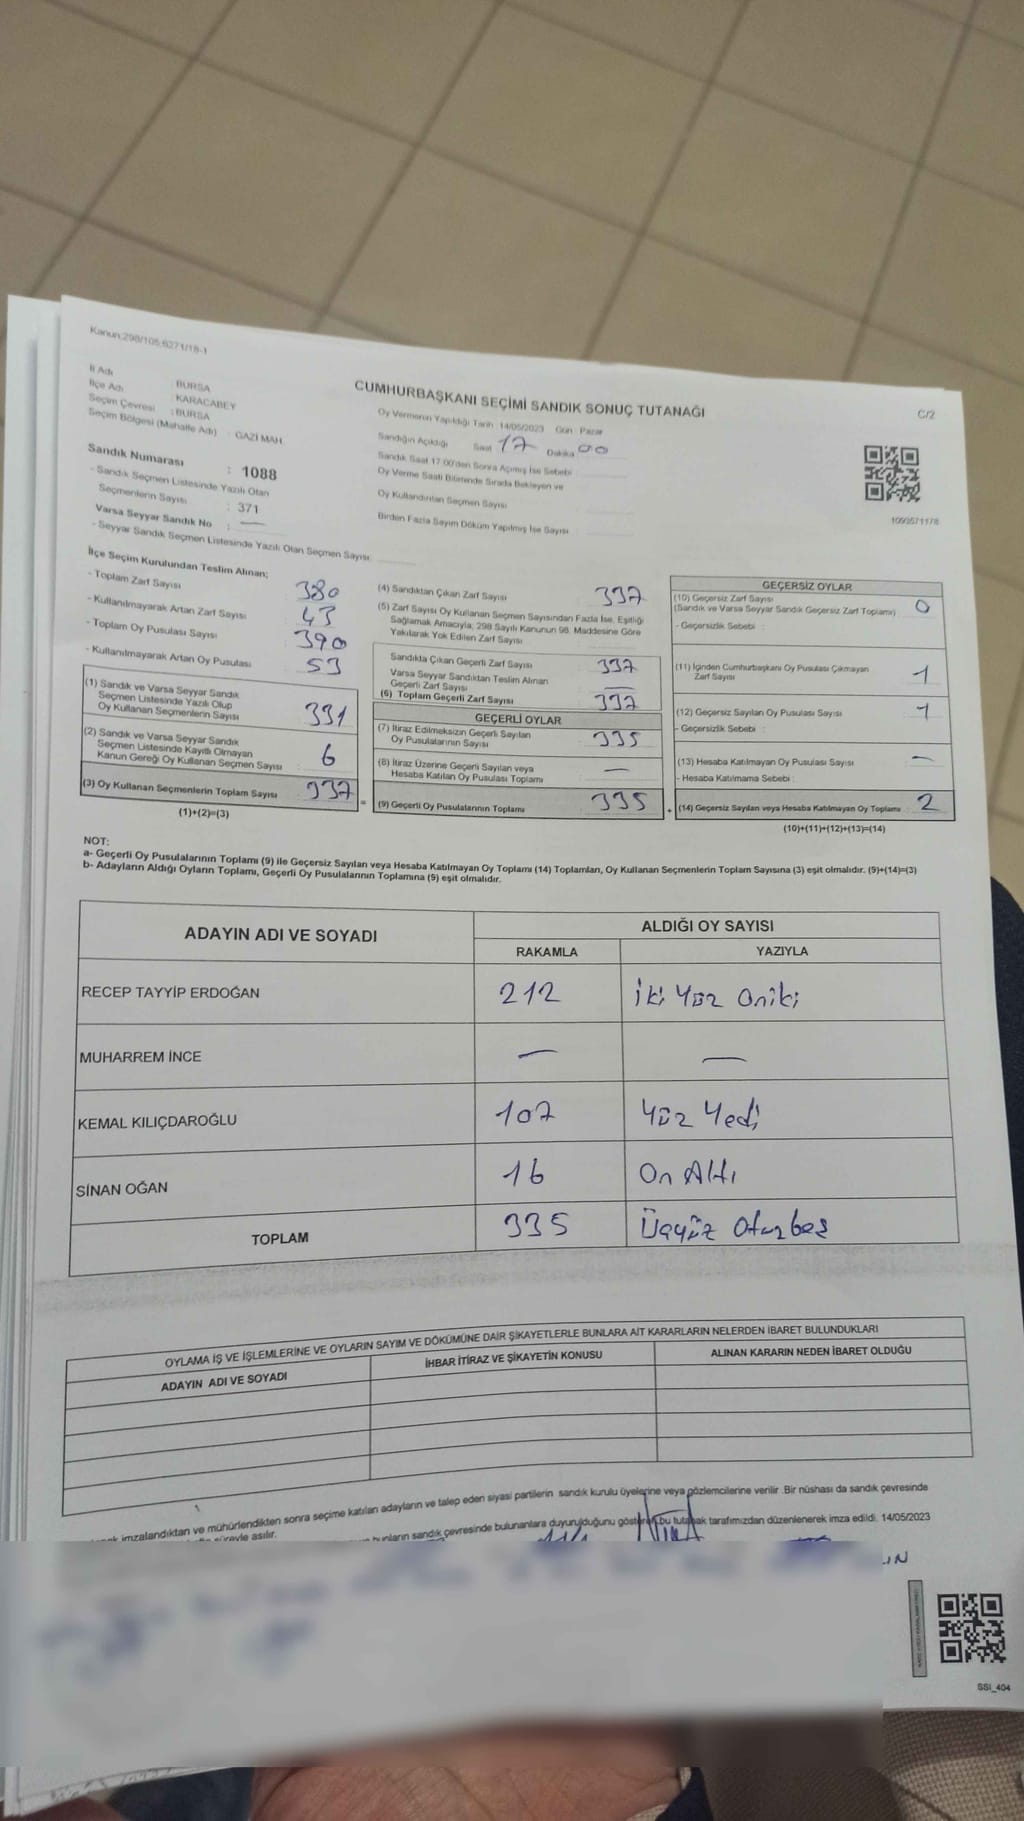 Kanun:298/105,6271/18-1
İl Adı : BURSA
İlçe Adı : KARACABEY
Seçim Çevresi : BURSA
Seçim Bölgesi (Mahalle Adı) : GAZİ MAH.
CUMHURBAŞKANI SEÇİMİ SANDIK SONUÇ TUTANAĞI
C/2
Oy Vermenin Yapıldığı Tarih : 14/05/2023 Gün : Pazar
Sandığın Açıldığı Saat 17 Dakika 00
Sandık Saat 17:00'den Sonra Açılmış İse Sebebi
Oy Verme Saati Bitiminde Sırada Bekleyen ve
Oy Kullandırılan Seçmen Sayısı
Birden Fazla Sayım Döküm Yapılmış İse Sayısı
1093571178
Sandık Numarası : 1088
- Sandık Seçmen Listesinde Yazılı Olan
Seçmenlerin Sayısı : 371
Varsa Seyyar Sandık No : —
- Seyyar Sandık Seçmen Listesinde Yazılı Olan Seçmen Sayısı:
İlçe Seçim Kurulundan Teslim Alınan;
- Toplam Zarf Sayısı 380
- Kullanılmayarak Artan Zarf Sayısı 43
- Toplam Oy Pusulası Sayısı 390
- Kullanılmayarak Artan Oy Pusulası 53
(1) Sandık ve Varsa Seyyar Sandık
Seçmen Listesinde Yazılı Olup
Oy Kullanan Seçmenlerin Sayısı 331
(2) Sandık ve Varsa Seyyar Sandık
Seçmen Listesinde Kayıtlı Olmayan
Kanun Gereği Oy Kullanan Seçmen Sayısı 6
(3) Oy Kullanan Seçmenlerin Toplam Sayısı 337
(1)+(2)=(3)
(4) Sandıktan Çıkan Zarf Sayısı 337
(5) Zarf Sayısı Oy Kullanan Seçmen Sayısından Fazla İse, Eşitliği
Sağlamak Amacıyla; 298 Sayılı Kanunun 98. Maddesine Göre
Yakılarak Yok Edilen Zarf Sayısı
Sandıkta Çıkan Geçerli Zarf Sayısı 337
Varsa Seyyar Sandıktan Teslim Alınan
Geçerli Zarf Sayısı —
(6) Toplam Geçerli Zarf Sayısı 337
GEÇERLİ OYLAR
(7) İtiraz Edilmeksizin Geçerli Sayılan
Oy Pusulalarının Sayısı 335
(8) İtiraz Üzerine Geçerli Sayılan veya
Hesaba Katılan Oy Pusulası Toplamı —
= (9) Geçerli Oy Pusulalarının Toplamı 335
GEÇERSİZ OYLAR
(10) Geçersiz Zarf Sayısı
(Sandık ve Varsa Seyyar Sandık Geçersiz Zarf Toplamı) 0
- Geçersizlik Sebebi :
(11) İçinden Cumhurbaşkanı Oy Pusulası Çıkmayan
Zarf Sayısı 1
(12) Geçersiz Sayılan Oy Pusulası Sayısı 1
- Geçersizlik Sebebi :
(13) Hesaba Katılmayan Oy Pusulası Sayısı —
- Hesaba Katılmama Sebebi :
+ (14) Geçersiz Sayılan veya Hesaba Katılmayan Oy Toplamı 2
(10)+(11)+(12)+(13)=(14)
NOT:
a- Geçerli Oy Pusulalarının Toplamı (9) ile Geçersiz Sayılan veya Hesaba Katılmayan Oy Toplamı (14) Toplamları, Oy Kullanan Seçmenlerin Toplam Sayısına (3) eşit olmalıdır. (9)+(14)=(3)
b- Adayların Aldığı Oyların Toplamı, Geçerli Oy Pusulalarının Toplamına (9) eşit olmalıdır.
ADAYIN ADI VE SOYADI ALDIĞI OY SAYISI
RAKAMLA YAZIYLA
RECEP TAYYİP ERDOĞAN 212 İki Yüz Oniki
MUHARREM İNCE — —
KEMAL KILIÇDAROĞLU 107 Yüz Yedi
SİNAN OĞAN 16 On Altı
TOPLAM 335 Üçyüz Otuzbeş
OYLAMA İŞ VE İŞLEMLERİNE VE OYLARIN SAYIM VE DÖKÜMÜNE DAİR ŞİKAYETLERLE BUNLARA AİT KARARLARIN NELERDEN İBARET BULUNDUKLARI
ADAYIN ADI VE SOYADI İHBAR İTİRAZ VE ŞİKAYETİN KONUSU ALINAN KARARIN NEDEN İBARET OLDUĞU
imzalandıktan ve mühürlendikten sonra seçime katılan adayların ve talep eden siyasi partilerin sandık kurulu üyelerine veya gözlemcilerine verilir. Bir nüshası da sandık çevresinde
süreyle asılır. bunların sandık çevresinde bulunanlara duyurulduğunu gösteren bu tutanak tarafımızdan düzenlenerek imza edildi. 14/05/2023
SSI_404